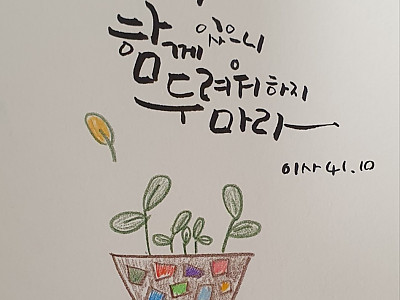 함께 있으니
두려워하지
마라
이사 41.10